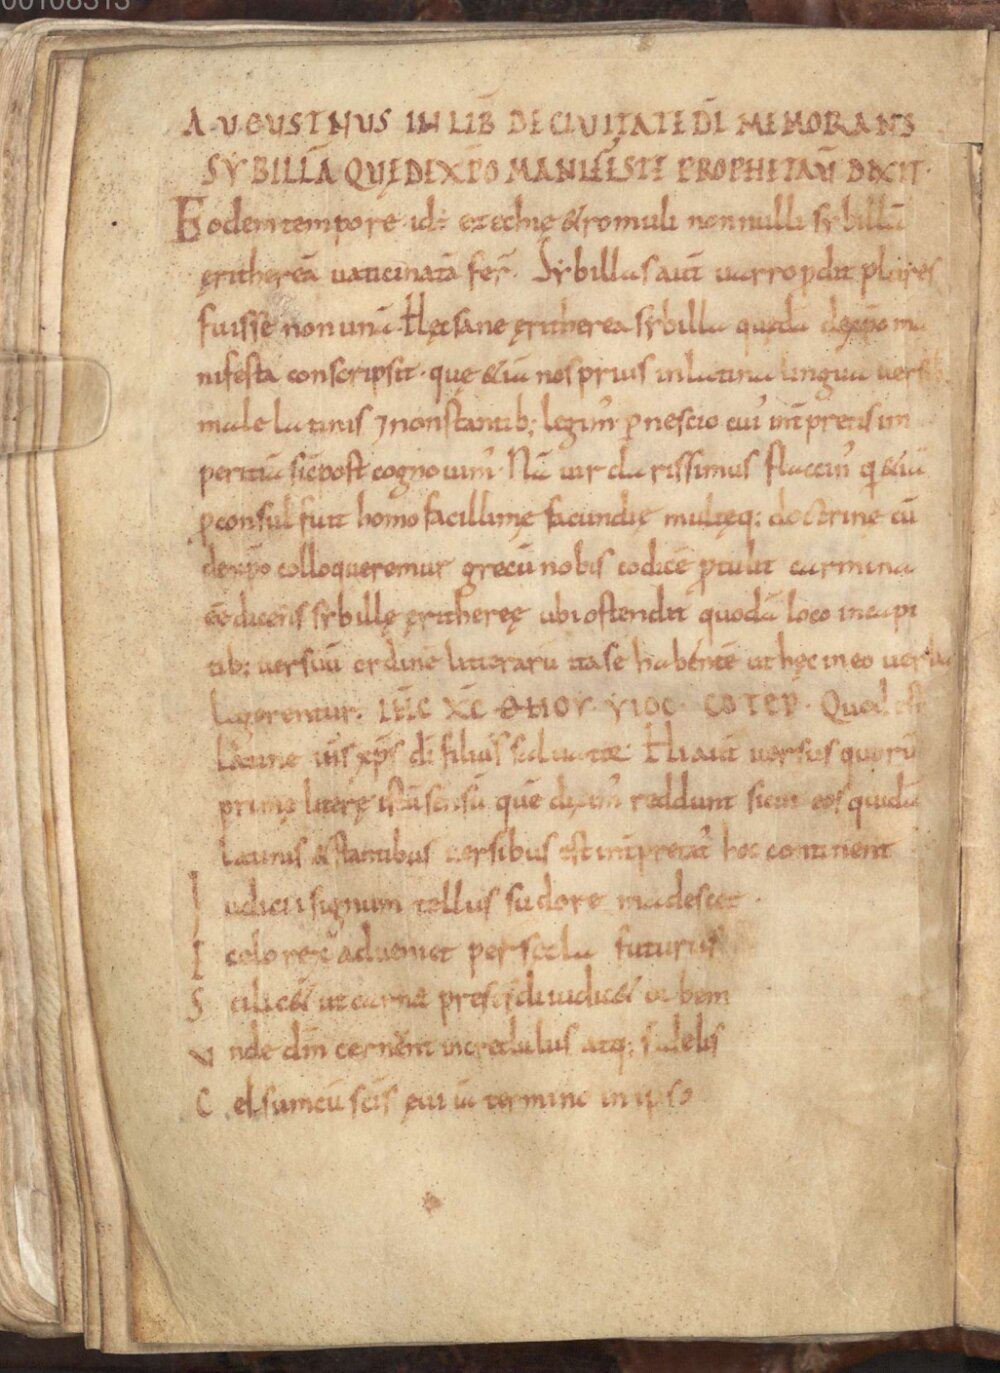 00108313
AUGUSTINUS IN LIB̄ DE CIVITATE DĪ MEMORANS
SYBILLĀ QUĘ DE XP̄O MANIFESTE PROPHETAN̄ DIXIT·
Eodem tempore id÷ ezechie & romuli nonnulli sybillā
ęrithereā vaticinatā fer̄· Sybillas aut̄ varro ꝓdit plures
fuisse non unā· Hęc sane ęritherea sybilla quędā de xp̄o ma
nifesta conscripsit· quę &iā nos prius in latina lingua versib;
male latinis ⁊ non stantib; legim' ꝑ nescio cui' int̄pretis im
peritiā sic̄ post cognovim'· Nā vir clarissimus flaccin' q &iā
ꝓconsul fuit homo facillimę facundię multęq; doctrinę cū
de xp̄o colloqueremur grecū nobis codicē ꝓtulit carmina
eē dicens sybillę ęrithereę ubi ostendit quodā loco in capi
tib; versuū ordinē litterarū ita se habentē ut hęc in eo verba
legerentur· IH̄C XC ΘΗΟΥ ΥΙΟC CΟΤΕΡ· Quod est
latine ih̄s xp̄s dī filius salvator· Hi aut̄ versus quorū
primę literę istū sensū quē dixim' reddunt sicut eos quidā
latinis & stantibus versibus est int̄pretat' hoc continent
I udicii signum tellus sudore madescet·
E celo rex adveniet per secla futurus
S cilic& ut carnē presens diiudic& orbem
U nde dm̄ cernent incredulus atq; fidelis
C elsum cū scīs ęvi iā termino in ipso